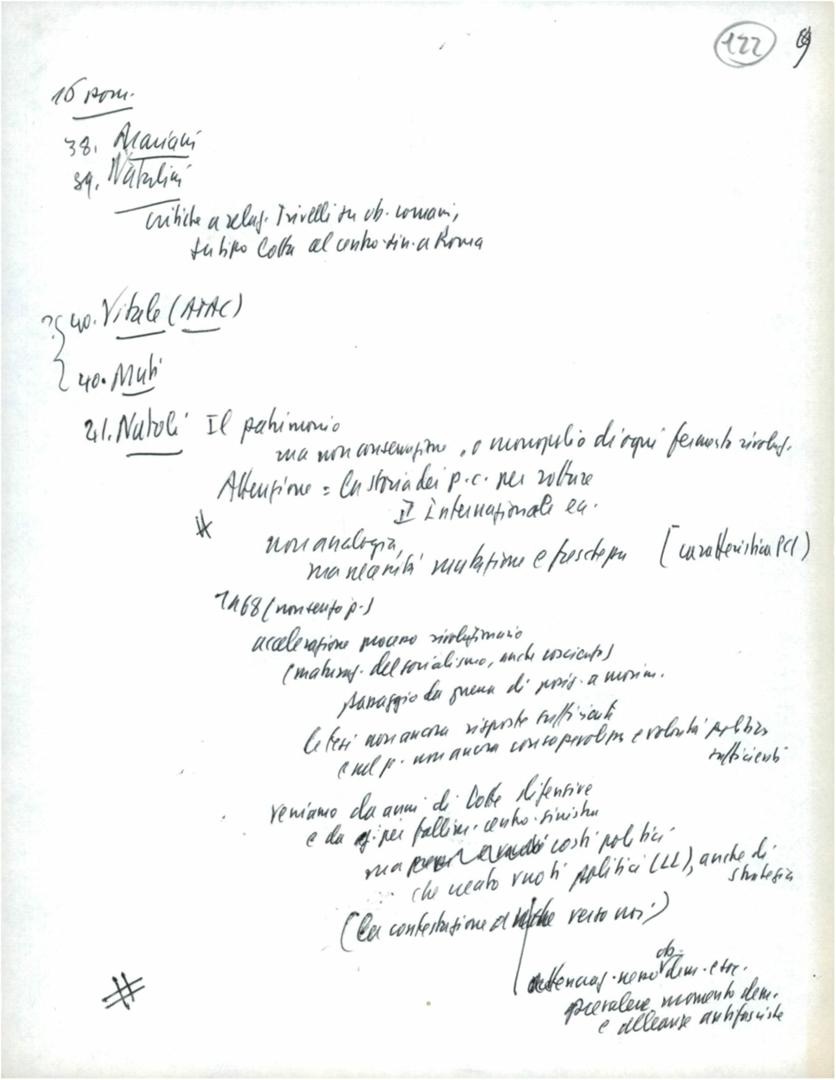 122
16 pom.
38. Mariani
39. Natalini
critiche a relaz. Trivelli su ob. romani,
su tipo lotta al centro-sin. a Roma
? 40. Vitale (ATAC)
40. Muti
41. Natoli Il patrimonio
ma non conservazione, o monopolio di ogni fermento rivoluz.
Attenzione = la storia dei p.c. per rotture
II Internazionale ecc.
non analogia,
ma necessità mutazione e freschezza [caratteristica PCI)
1968 (non sento p.)
accelerazione processo rivoluzionario
(maturaz. del socialismo, anche coscienza)
passaggio da guerra di posiz. a movim.
le tesi non ancora risposte sufficienti
e nel p. non ancora consapevolezza e volontà politica
sufficienti
veniamo da anni di lotte difensive
e da op. per fallim. centro-sinistra
ma costi politici
che creato vuoti politici (LL), anche di
strategia
(la contestazione è anche verso noi)
ob.
attenuaz. nesso dem. e soc.
prevalere momento dem.
e alleanze antifasciste
#